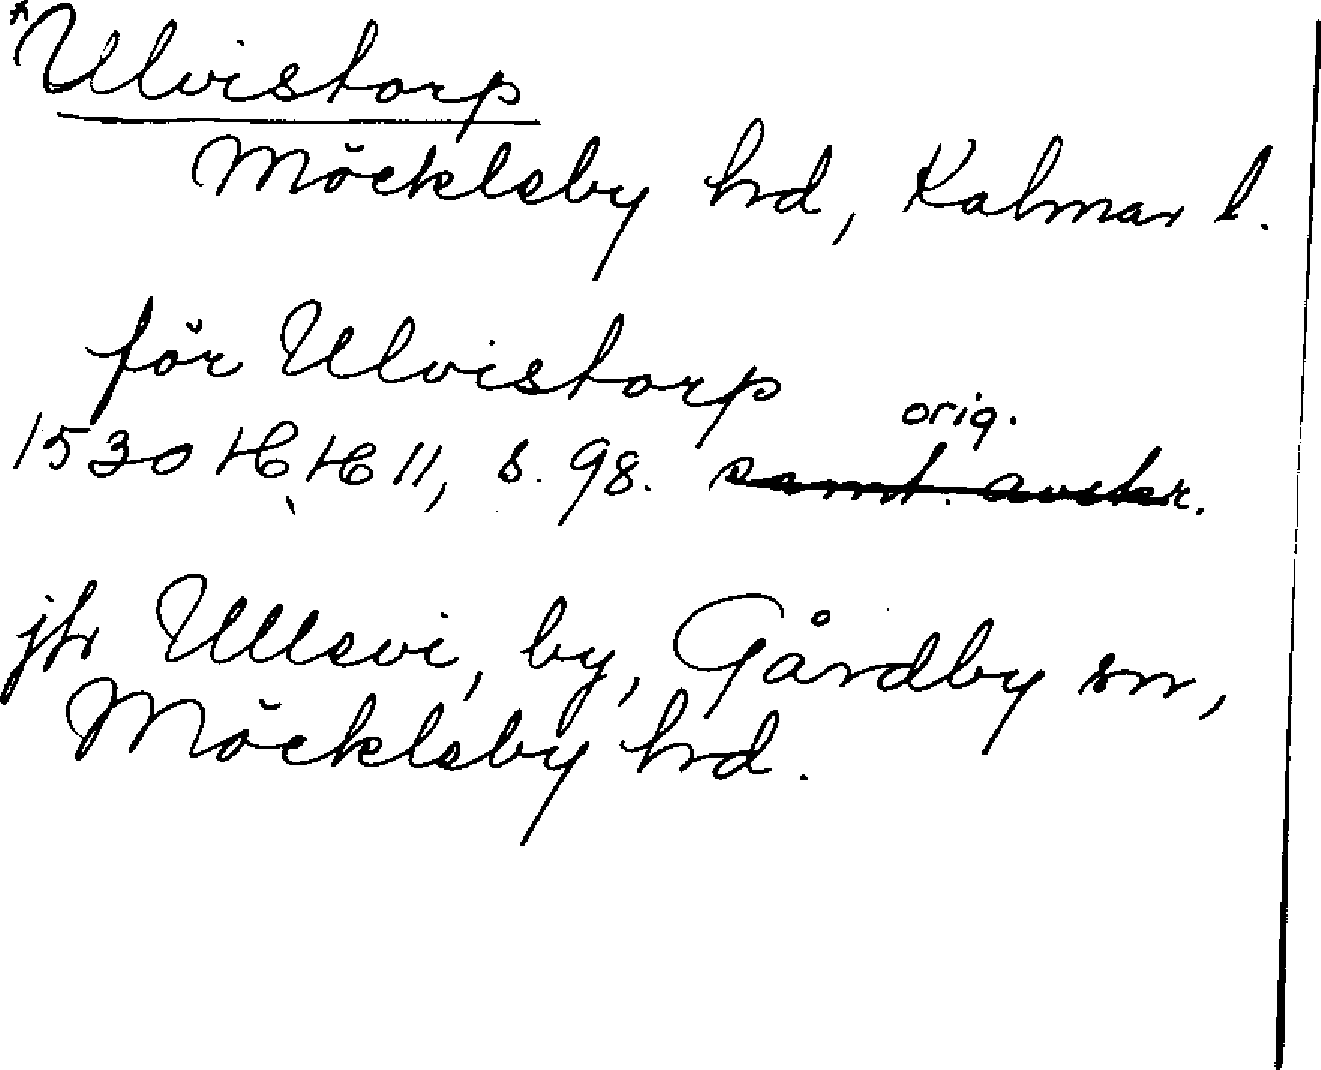 *Ulvistorp
Möckleby hrd, Kalmar l.
för Ulvistorp
orig.
1530 H, H 11, s. 98. samt. avskr.
jfr Ullevi, by, Gårdby sn,
Möckleby hrd.